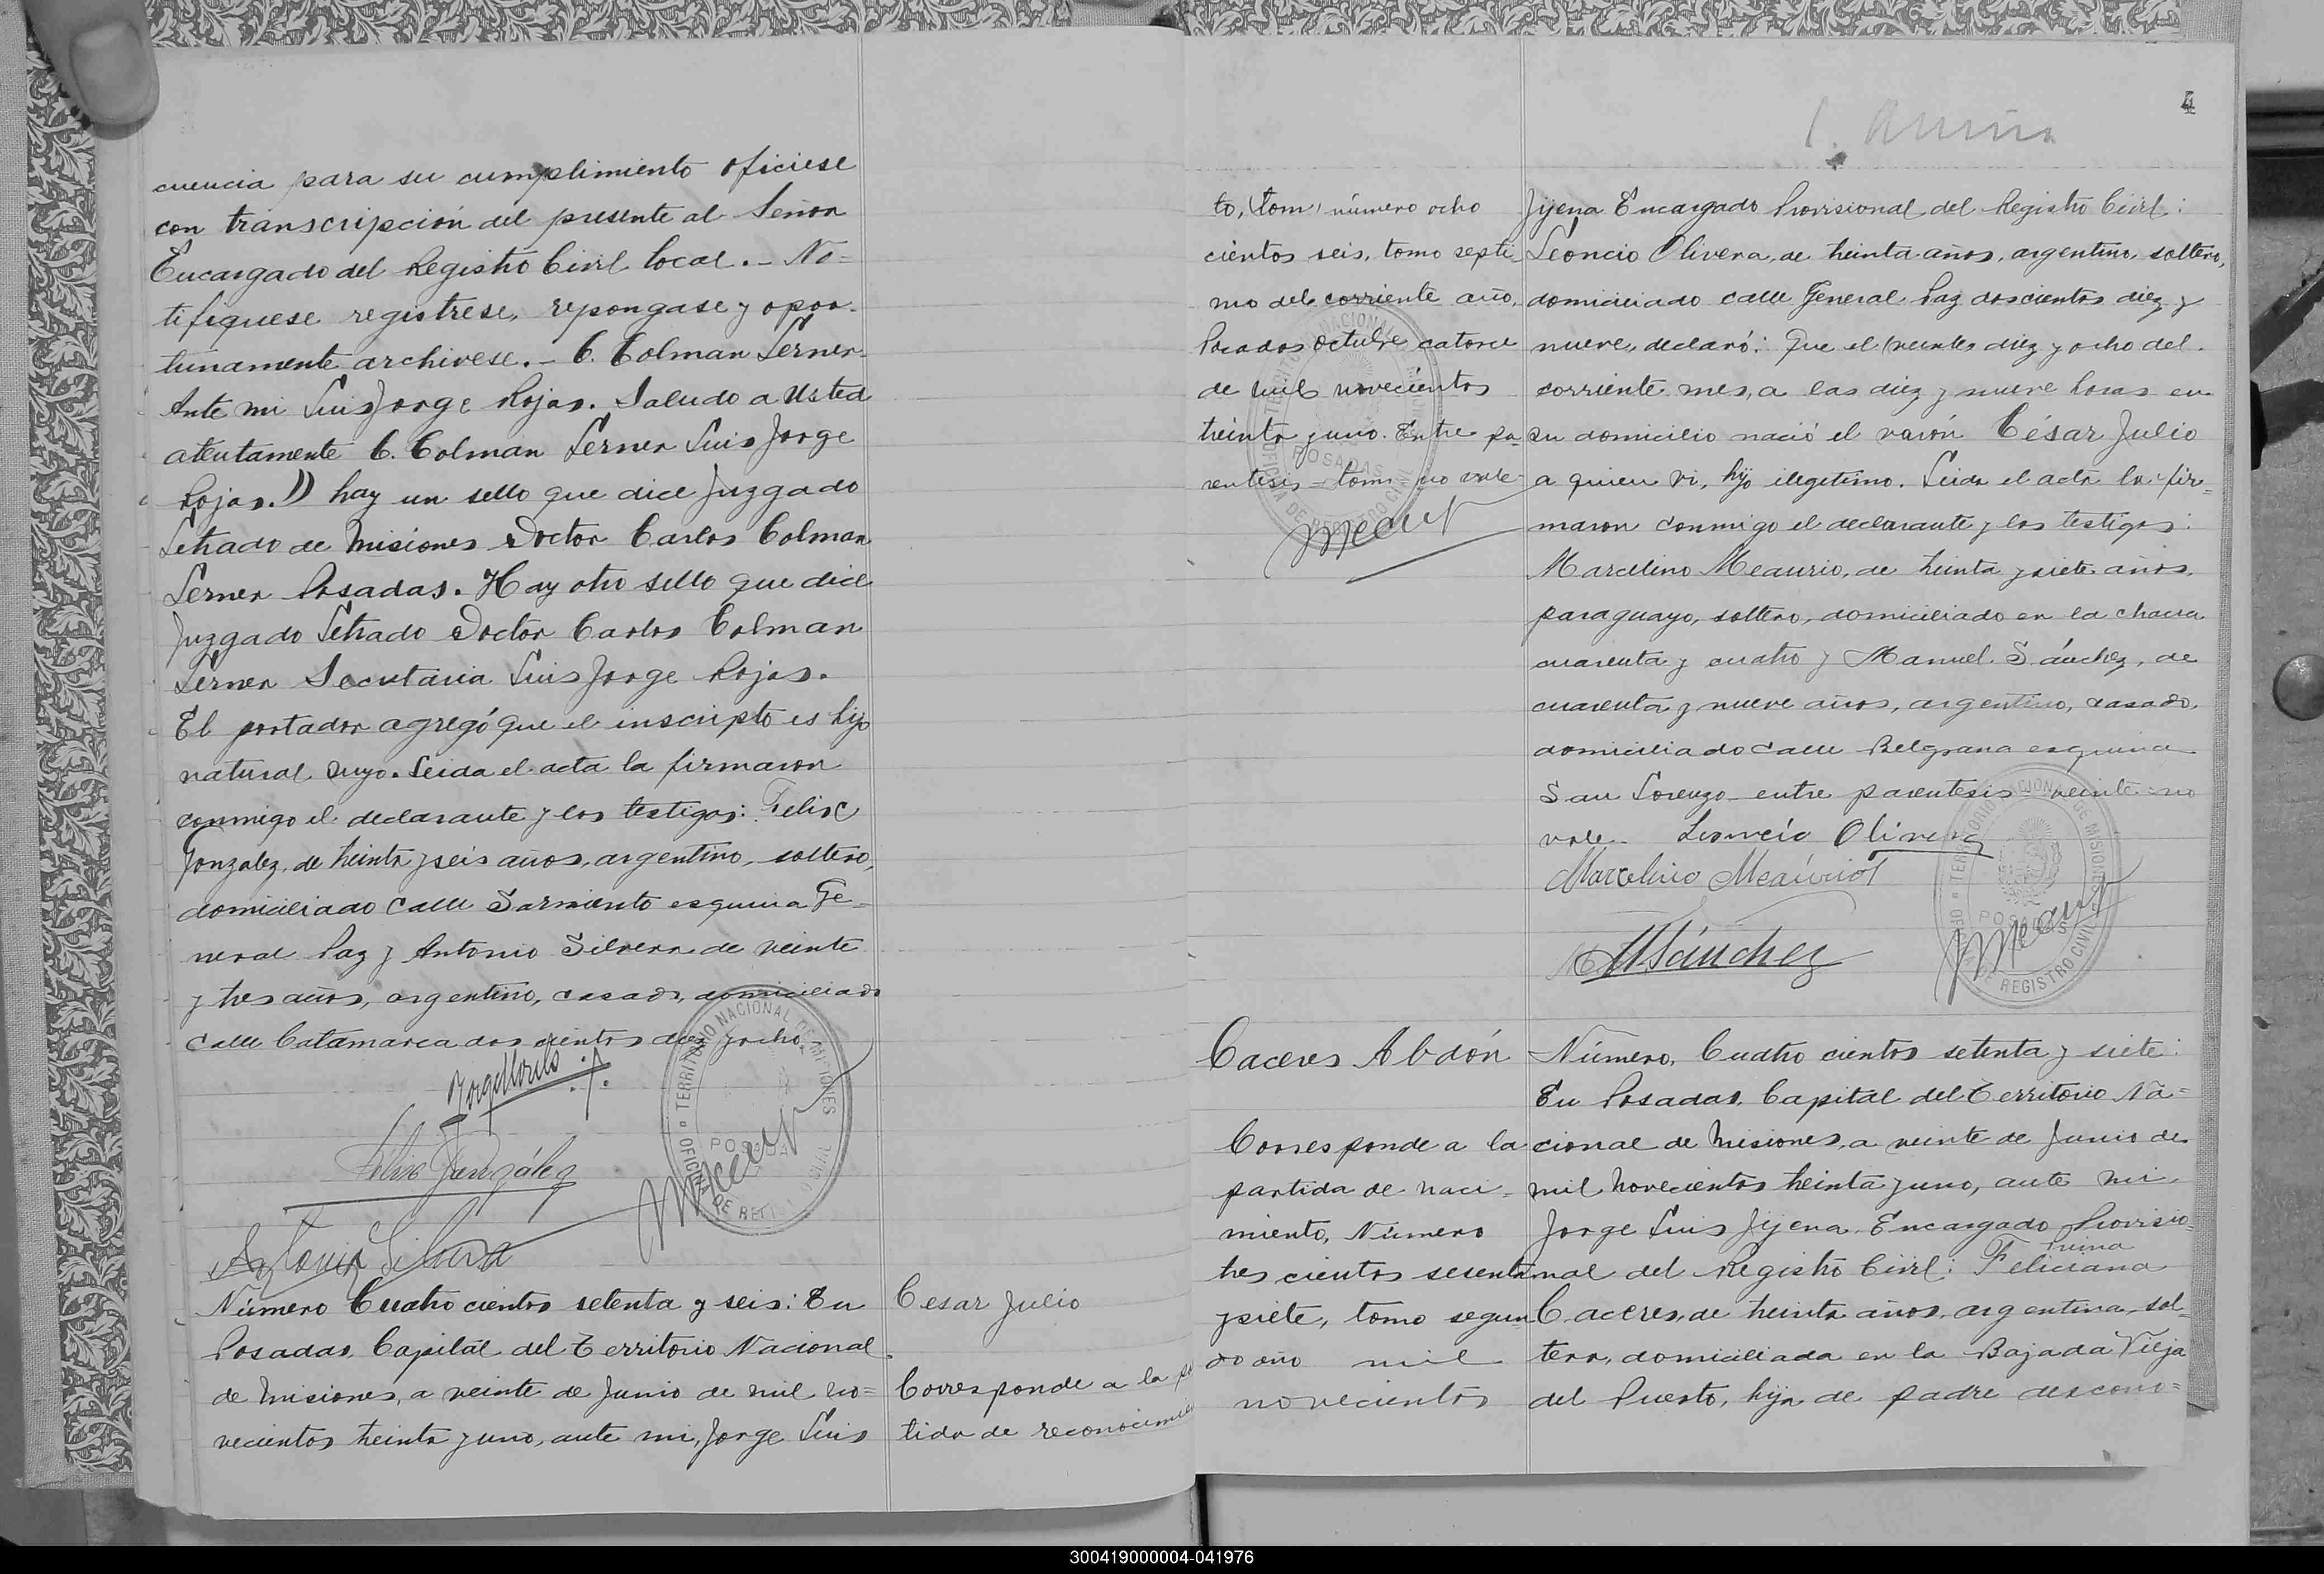 cuencia para su cumplimiento oficiese
con transcripción del presente al Señor
Encargado del Registro Civil local.- No=
tifiquese registrese, repongase y opor-
tunamente archivese.- C. Colman Lerner-
Ante mi Luis Jorge Rojas. Saludo a Usted
atentamente C. Colman Lerner Luis Jorge
Rojas.)) hay un sello que dice Juzgado
Letrado de Misiones Doctor Carlos Colman
Lerner Posadas. Hay otro sello que dice
Juzgado Letrado Doctor Carlos Colman
Lerner Secretaria Luis Jorge Rojas.
El portador agregó que el inscripto es hijo
natural suyo. Leida el acta la firmaron
conmigo el declarante y los testigos: Felix
Gonzalez, de treinta y seis años, argentino, soltero,
domiciliado calle Sarmiento esquina Ge-
neral Paz y Antonio Silvera de veinte
y tres años, argentino, casado, domiciliado
calle Catamarca dos cientos diez y ocho.
Felix González
Antonio Silvera
TERRITORIO NACIONAL DE MISIONES
POSADAS
OFICINA DE REGISTRO CIVIL
Número Cuatro cientos setenta y seis: En
Posadas, Capital del Territorio Nacional
de Misiones, a veinte de Junio de mil no=
vecientos treinta y uno, ante mi, Jorge Luis
Cesar Julio
Corresponde a la par
tida de reconocimien
4
to, (tom) número ocho
cientos seis, tomo septi
mo del corriente año.
Posadas octubre catorce
de mil novecientos
treinta y uno. Entre pa-
rentesis - tom no vale-
TERRITORIO NACIONAL DE MISIONES
POSADAS
OFICINA DE REGISTRO CIVIL
Jijena Encargado Provisional del Registro Civil:
Leoncio Olivera, de treinta años, argentino, soltero,
domiciliado calle General Paz doscientos diez y
nueve, declaró: Que el (veinte) diez y ocho del
corriente mes, a las diez y nueve horas en
su domicilio nació el varón César Julio
a quien vi, hijo ilegitimo. Leida el acta la fir=
maron conmigo el declarante y los testigos:
Marcelino Meaurio, de treinta y siete años,
paraguayo, soltero, domiciliado en la chacra
cuarenta y cuatro y Manuel Sánchez, de
cuarenta y nueve años, argentino, casado,
domiciliado calle Belgrano esquina
San Lorenzo- entre parentesis - veinte = no
vale- Leoncio Olivera
Marcelino Meaurio
M Sánchez
TERRITORIO NACIONAL DE MISIONES
POSADAS
OFICINA DE REGISTRO CIVIL
Caceres Abdón
Corresponde a la
partida de naci-
miento, Número
tres cientos sesenta
y siete, tomo segun
do año mil
novecientos
Número, Cuatro cientos setenta y siete:
En Posadas, Capital del Territorio Na=
cional de Misiones, a veinte de Junio de
mil Novecientos treinta y uno, ante mi,
Jorge Luis Jijena, Encargado Provisio=
nal del Registro Civil: Feliciana
Caceres, de treinta años, argentina, sol-
tera, domiciliada en la Bajada Vieja
del Puerto, hija de padre descono=
300419000004-041976